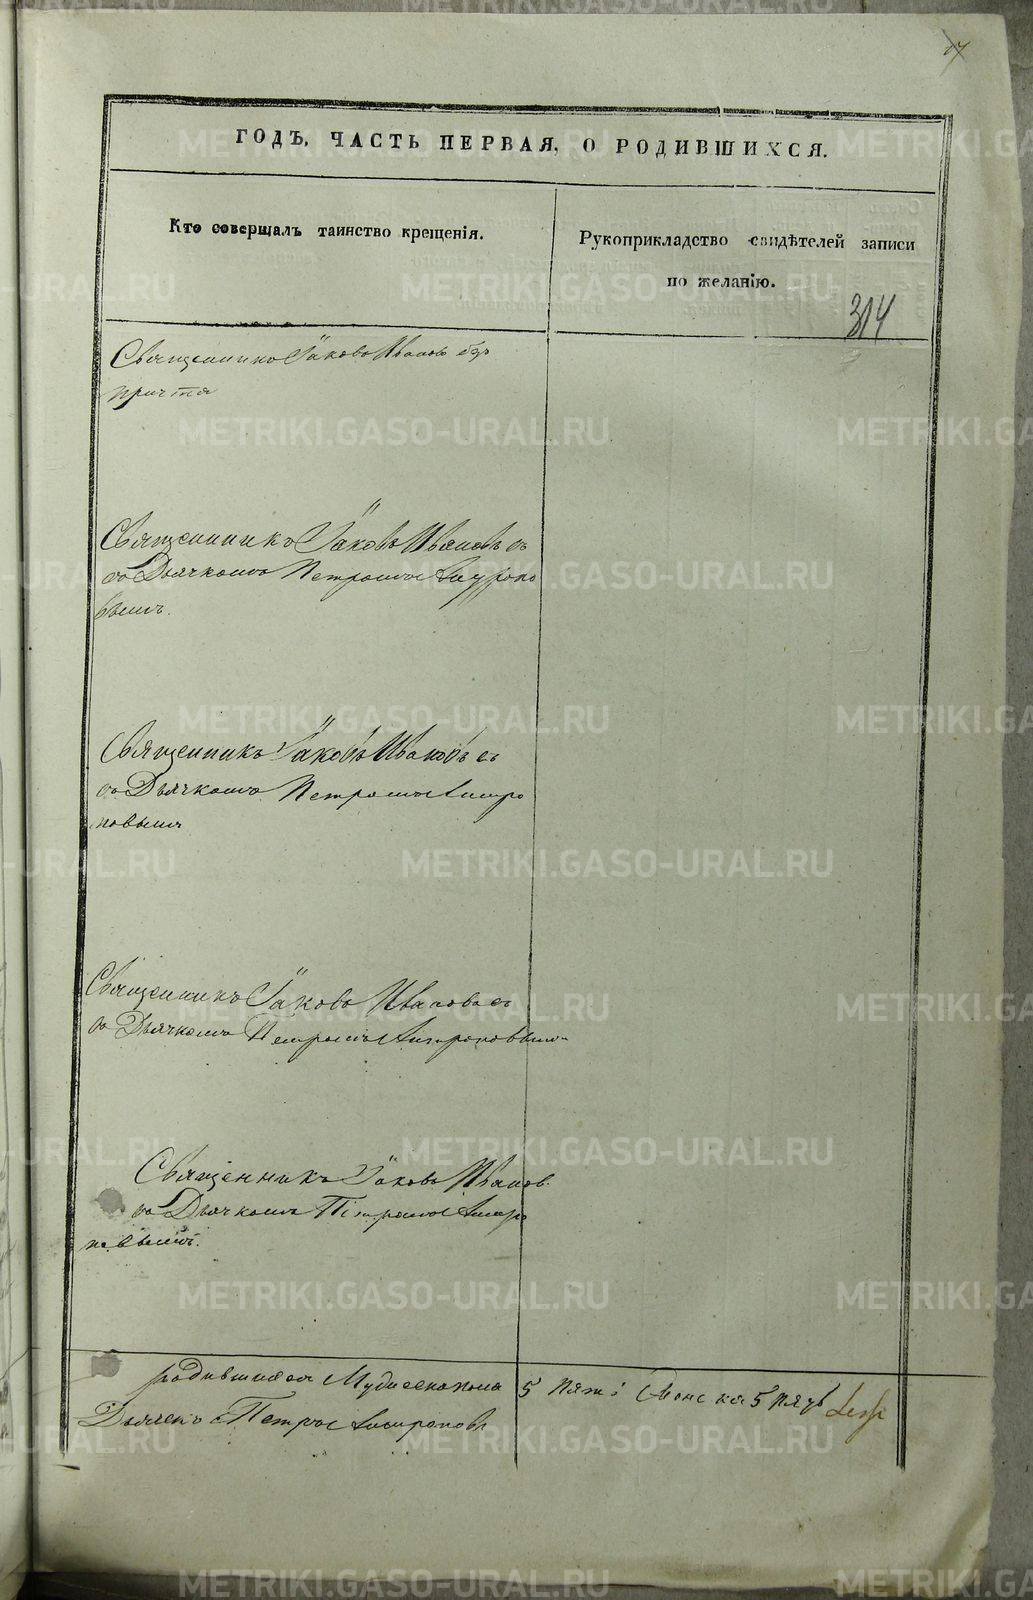 17
ГОДЪ, ЧАСТЬ ПЕРВАЯ, О РОДИВШИХСЯ.
Кто совершалъ таинство крещенія.
Рукоприкладство свидѣтелей записи
по желанію.
314
Священникъ Іаковъ Ивановъ безъ
причта
Священникъ Іаковъ Ивановъ съ
Дьячкомъ Петромъ
Священникъ Іаковъ Ивановъ съ
Дьячкомъ Петромъ
повымъ
Священникъ Іаковъ Ивановъ съ
Дьячкомъ Петромъ
Священникъ Іаковъ Иванов
Дьячкомъ Петромъ
повымъ.
родившихся Мужеска пола 5 пять Женска 5 пять
Дьячекъ Петръ
METRIKI.GASO-URAL.RU